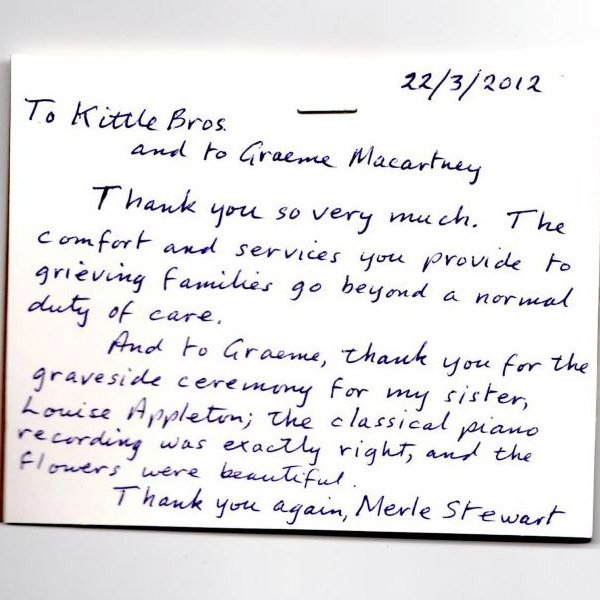 22/3/2012
To Kittle Bros.
and to Graeme Macartney
Thank you so very much. The
comfort and services you provide to
grieving families go beyond a normal
duty of care.
And to Graeme, thank you for the
graveside ceremony for my sister,
Louise Appleton; the classical piano
recording was exactly right, and the
flowers were beautiful.
Thank you again, Merle Stewart